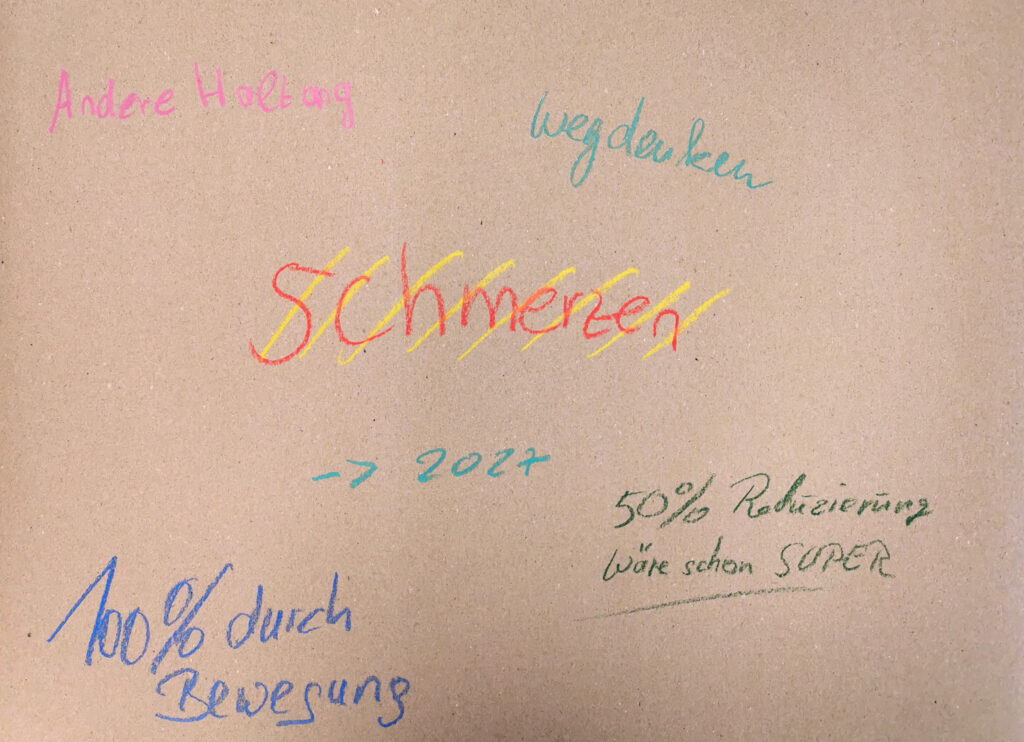 Andere Haltung
wegdenken
Schmerzen
-> 2027
50% Reduzierung
wäre schon SUPER
100% durch
Bewegung